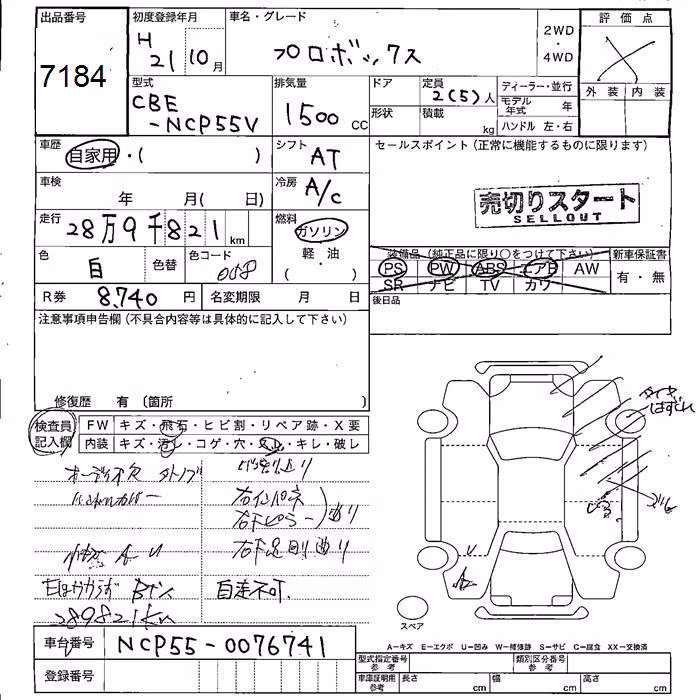 出品番号
初度登録年月
車名・グレード
評価点
7184
H
21
10月
プロボックス
2WD
・
4WD
外装 内装
型式
排気量
ドア
定員
2(5)人
ディーラー・並行
CBE
-NCP55V
1500 CC
形状
積載
kg
モデル年式
年
ハンドル 左・右
車歴
自家用・( )
シフト
AT
セールスポイント(正常に機能するものに限ります)
車検
年 月( 日)
冷房
A/c
売切りスタート
SELLOUT
走行
28万9千821km
燃料
ガソリン
軽・油
( )
装備品(純正品に限り○をつけて下さい)
新車保証書
PS PW ABS エアB AW
有・無
SR ナビ TV カワ
色
白
色替
色コード
058
R券
8,740円
名変期限 月 日
後日品
注意事項申告欄(不具合内容等は具体的に記入して下さい)
修復歴 有 (箇所 )
検査員
記入欄
FW キズ・飛石・ヒビ割・リペア跡・X要
内装 キズ・汚レ・コゲ・穴・スレ・キレ・破レ
タイヤ
はずれ
オーディオ欠
右インパネ
右下ピラー
曲り
自走不可
289821km
スペア
A-キズ E-エクボ U-凹み W-補修跡 S-サビ C-腐食 XX-交換済
車台番号
NCP55-0076741
型式指定番号
参考
類別区分番号
参考
登録番号
車庫証明用
参考
長さ cm
幅 cm
高さ cm